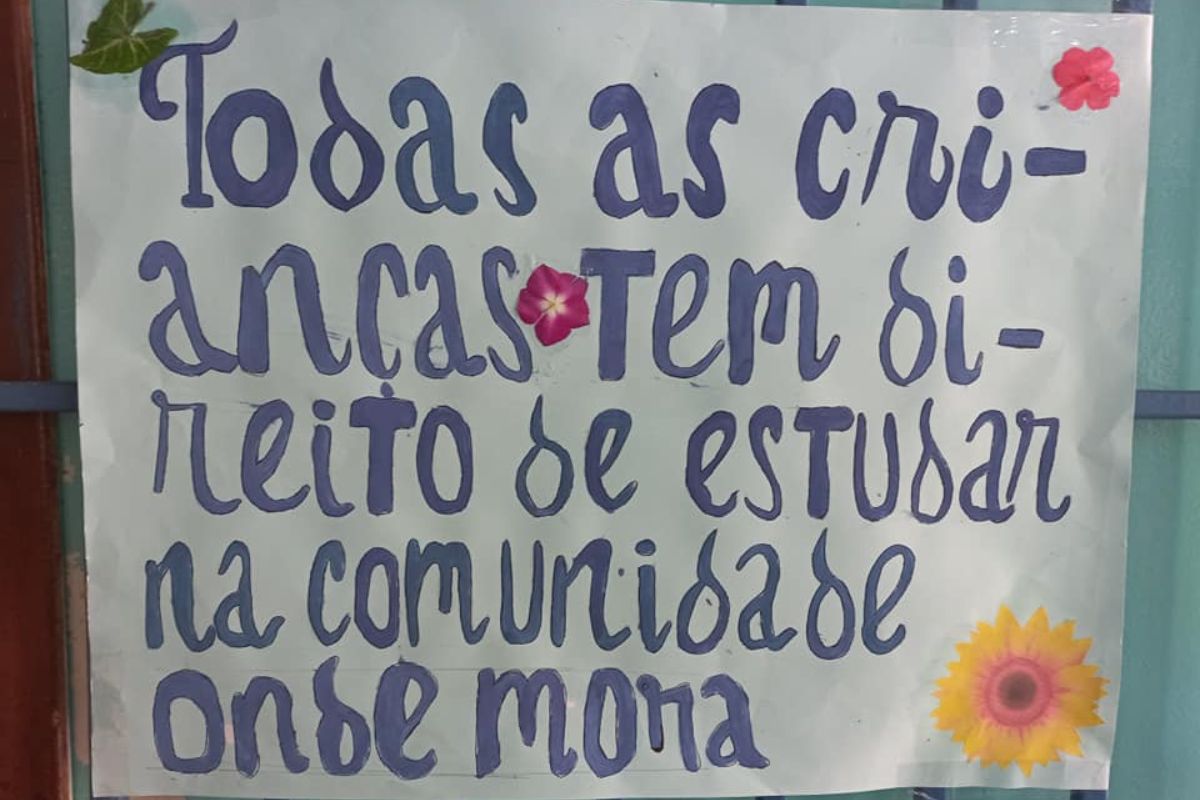 Todas as cri-
ancas Tem di-
reito de estudar
na comunidade
onde mora